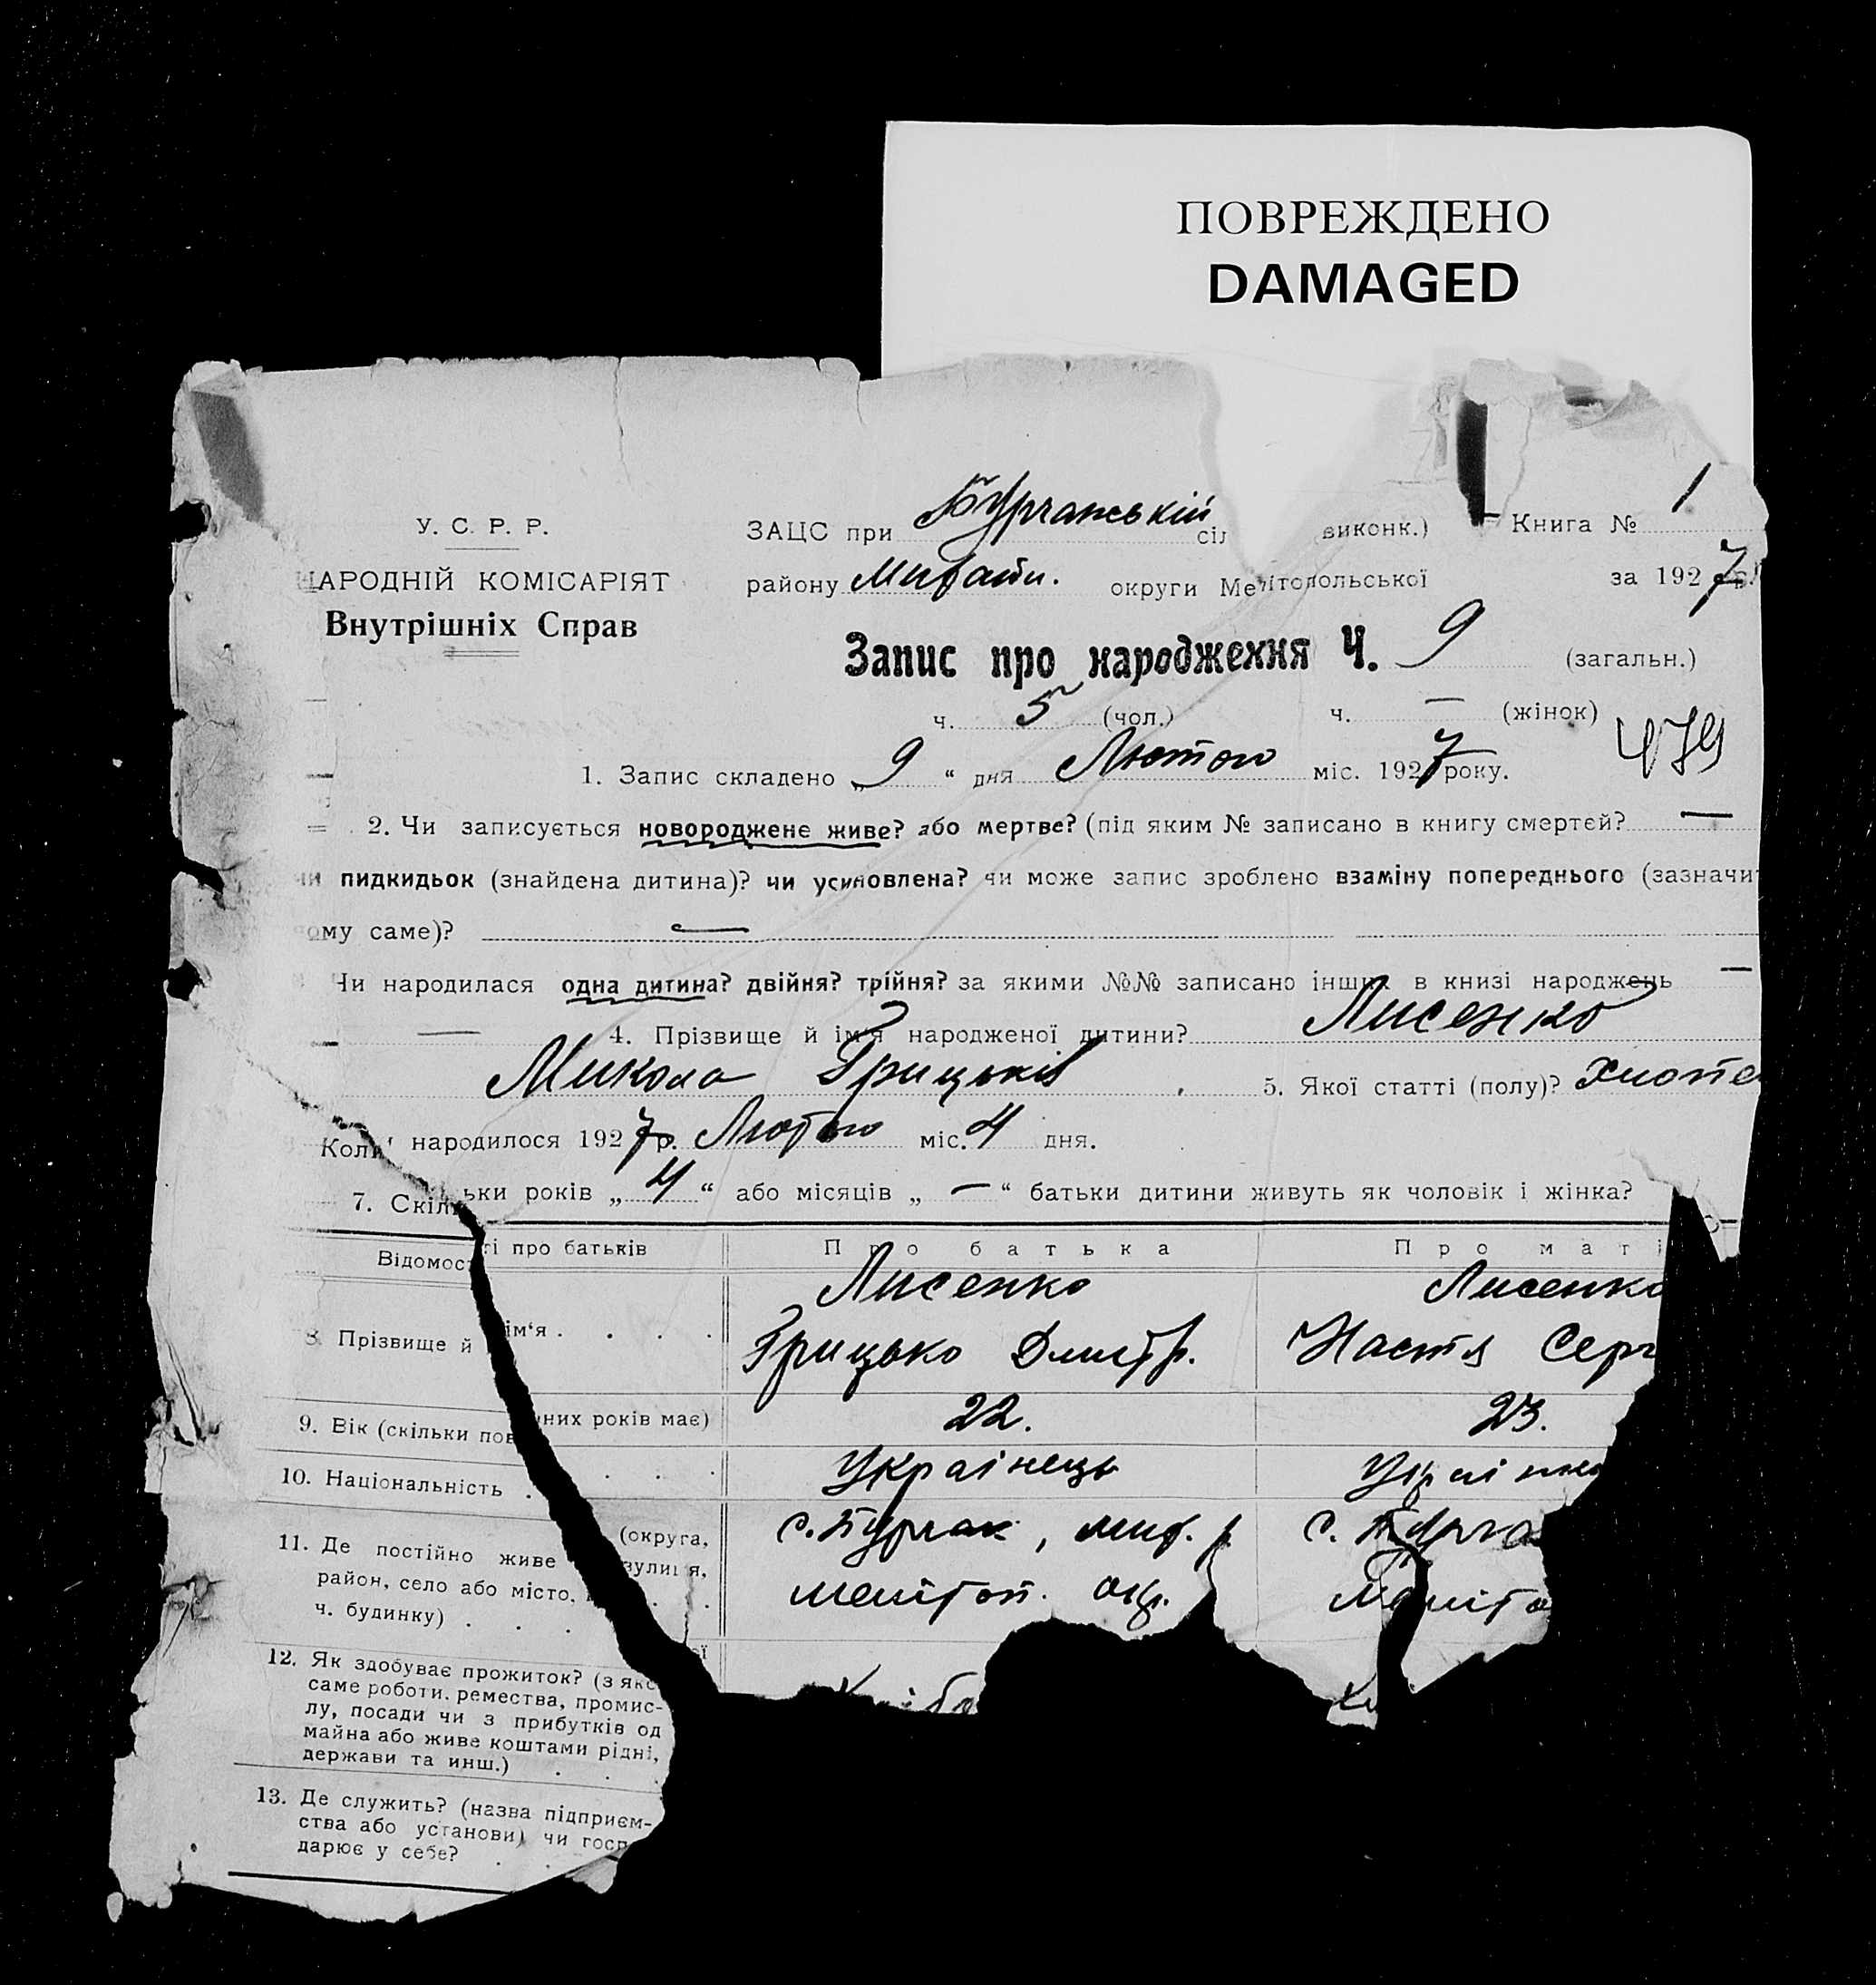 ПОВРЕЖДЕНО
DAMAGED
У. С. Р. Р.
НАРОДНІЙ КОМІСАРІЯТ
Внутрішніх Справ
ЗАЦС при Бурчанській сіл виконк.) Книга № 1
району округи Мелітопольської за 1927 р.
Запис про народження Ч. 9 (загальн.)
ч. 5 (чол.) ч. — (жінок)
479
1. Запис складено „ 9 “ дня Лютого міс. 1927 року.
2. Чи записується новороджене живе? або мертве? (під яким № записано в книгу смертей? —
чи пидкидьок (знайдена дитина)? чи усиновлена? чи може запис зроблено взаміну попереднього (зазначи
ому саме)? —
Чи народилася одна дитина? двійня? трійня? за якими №№ записано інших в книзі народжень —
— 4. Прізвище й ім'я народженої дитини? Лисенко
Микола Грицьків 5. Якої статті (полу)? Хлопе
Коли народилося 1927 р. Лютого міс. 4 дня.
7. Скільки років „ 4 “ або місяців „ — “ батьки дитини живуть як чоловік і жінка?
Відомості про батьків Про батька Про маті
8. Прізвище й ім‘я . . . . Лисенко Лисенко
Грицько Дмитр. Настя Серг
9. Вік (скільки повних років має) 22. 23.
10. Національність . . . . Українець Українка
11. Де постійно живе (округа, с. Бурчак, мих. р. с. Бурча
район, село або місто, вулиця, меліток. окр. Меліто
ч. будинку) . . . . .
12. Як здобуває прожиток? (з якої
саме роботи, ремества, промис-
лу, посади чи з прибутків од
майна або живе коштами рідні,
держави та инш.) . . .
13. Де служить? (назва підприєм-
ства або установи) чи госп
дарює у себе? . .